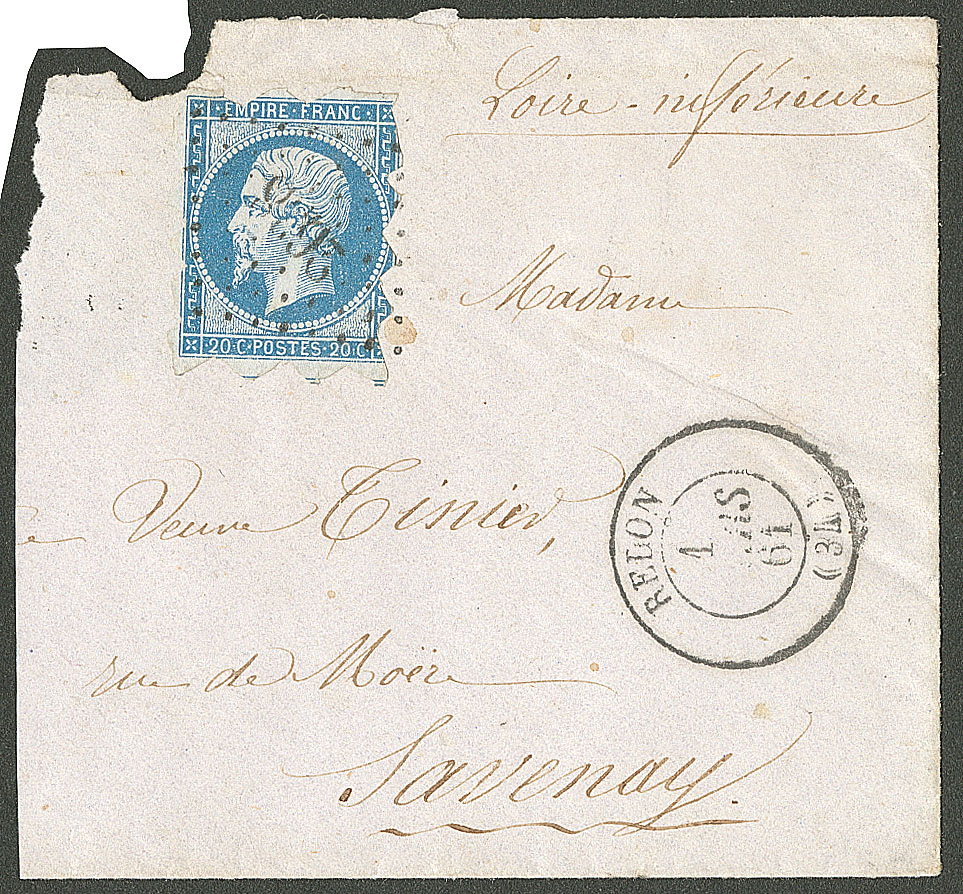 Loire-inférieure
EMPIRE FRANC
20 C · POSTES · 20 C
Madame
Veuve Tinier,
REDON
1
MARS
61
rue de Moëre
Savenay.